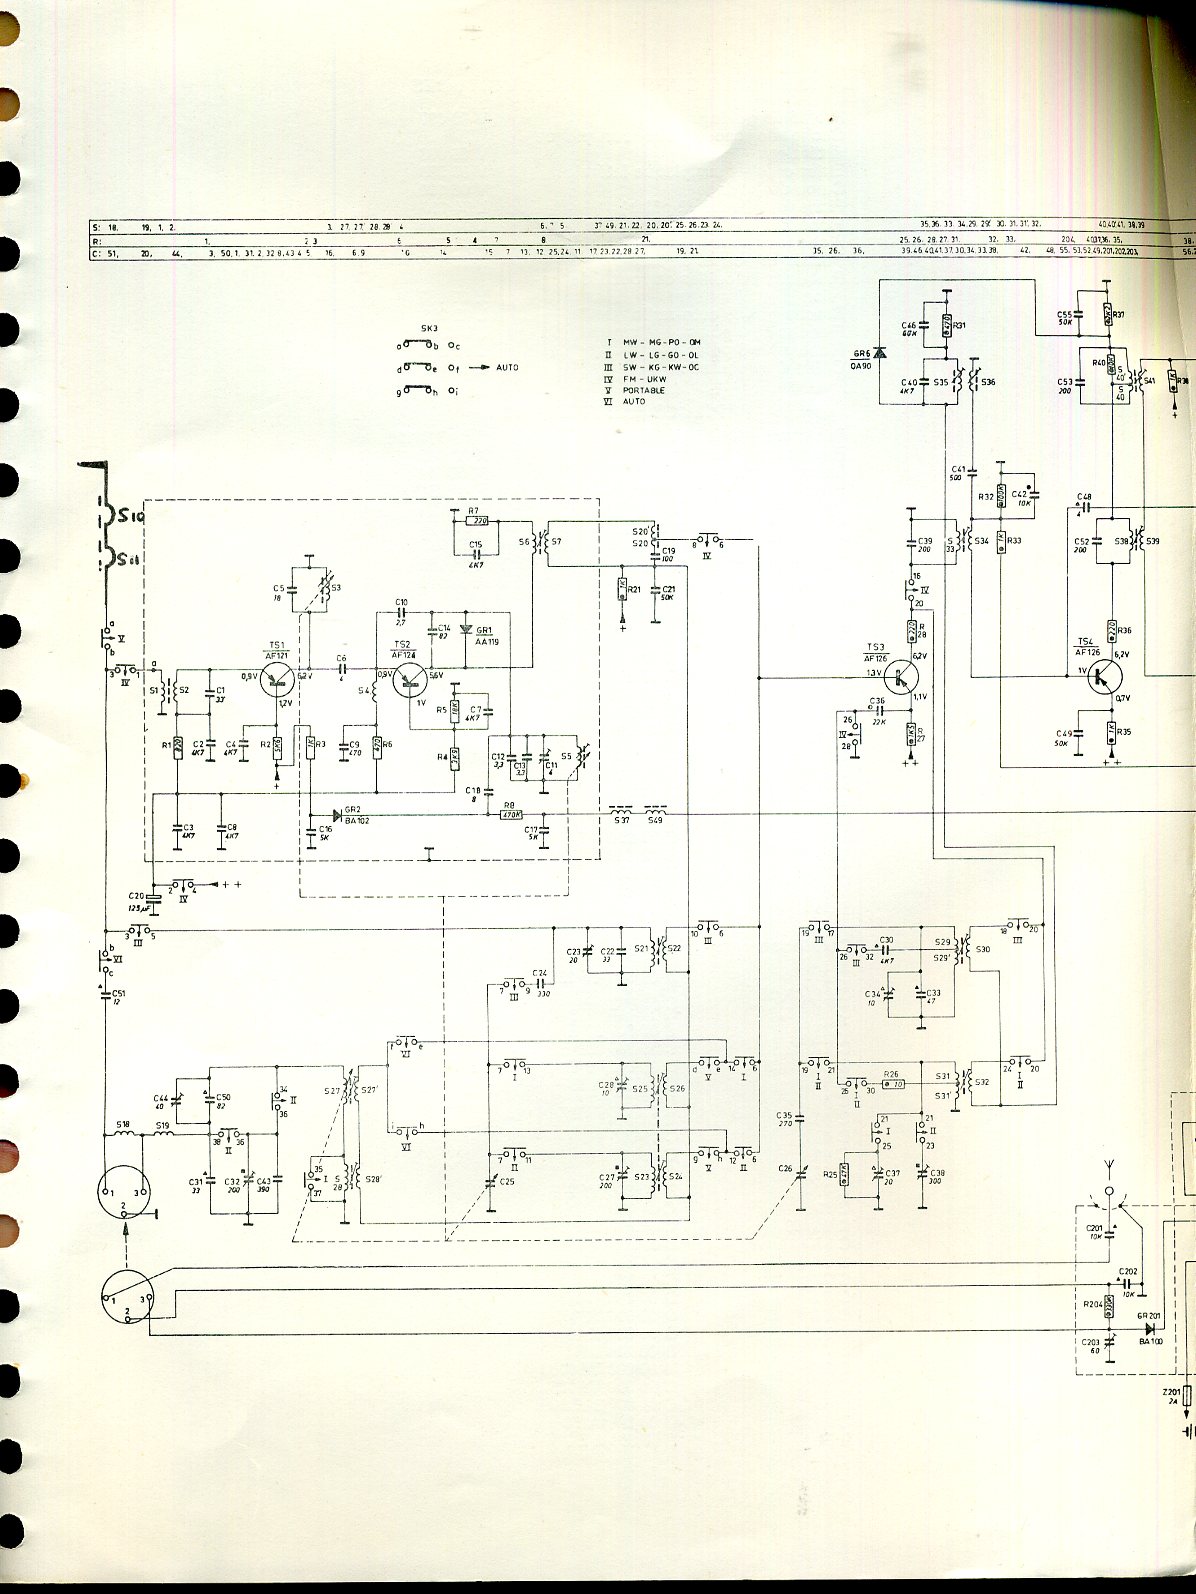 S: 18. 19, 1, 2. 3. 27. 27' 28. 28' 4 6. 5 3" 49. 21. 22. 20. 20'. 25. 26. 23. 24. 35. 36. 33. 34. 29. 29'. 30. 31. 31'. 32. 40.40'41, 38.39
R: 1, 2 3 6 5 4 7 8 21. 25. 26. 28. 27. 31. 32. 33. 204, 35,
C: 51, 20, 44, 16, 6.9 6 14 15 7 13, 12 25,24, 11 17 23,22,28 27, 19, 21 35. 26. 36, 39.46.40.41.37.30.34.33.38. 42, 48, 55. 53.52.49.201,202,203,
SK3
a b c
d e f → AUTO
g h i
I MW - MG - PO - OM
II LW - LG - GO - OL
III SW - KG - KW - OC
IV FM - UKW
V PORTABLE
VI AUTO
C46 60K R31 470
C55 50K R37
GR6 OA90
C40 4K7 S35 S36
R40 C53 200 S 40' S 40 S41 1K
C41 500
S10
S11
R7 220
C15 4K7
S6 S7 S20' S20
C19 100
8 6 IV
C39 200 S 33 S34
R32 100K C42 10K
R33 1K
C48 4
C52 200 S38 S39
C5 18 S3
C10 2,7
C14 82
GR1 AA119
R21 1K C21 50K
+
16 IV 20
R 28 220
R36 220
a V b
3 1 IV
a S1 S2
C1 33
TS1 AF121
0,9V 6,2V 1,2V
C6 4
TS2 AF124
0,9V 5,6V 1V
S4
TS3 AF126
1,3V 6,2V 1,1V
TS4 AF126
1V 6,2V 0,7V
R1 820 C2 4K7
C4 4K7 R2 5K6 R3 1K
C9 470 R6 470
R5 18K C7 4K7
R4 3K9
C12 3,3 C13 3,3 C11 4 S5
C36 22K
26 IV 28
R 27 1K5
++
C49 50K R35 1K
++
C18 8
R8 470K
GR2 BA102
C3 4K7 C8 4K7
C16 5K
C17 5K
S37 S49
C20 125µF
2 4 IV ++
3 5 III
b VI c
C51 12
C23 20 C22 33 S21 S22
10 6 III
C24 330
7 9 III
19 17 III
26 32 III
C30 4K7
S29 S29' S30
18 20 III
C34 10 C33 47
f e VI
7 13 I
C28 10 S25 S26
d e V
14 6 I
19 21 I II
25 30 I II
R26 10
S31 S31' S32
24 20 I II
C44 40 C50 82
34 II 36
S27 S27'
i h VI
S18 S19
38 36 II
C31 33 C32 200 C43 390
35 I 37
S 28 S28'
7 11 II
C25
C27 200 S23 S24
9 h V
12 6 II
C35 270
C26
21 I 25
21 II 23
R25 47K
C37 20
C38 300
1 3 2
1 3 2
C201 10K
C202 10K
R204 330K
GR201 BA100
C203 60
Z201 2A